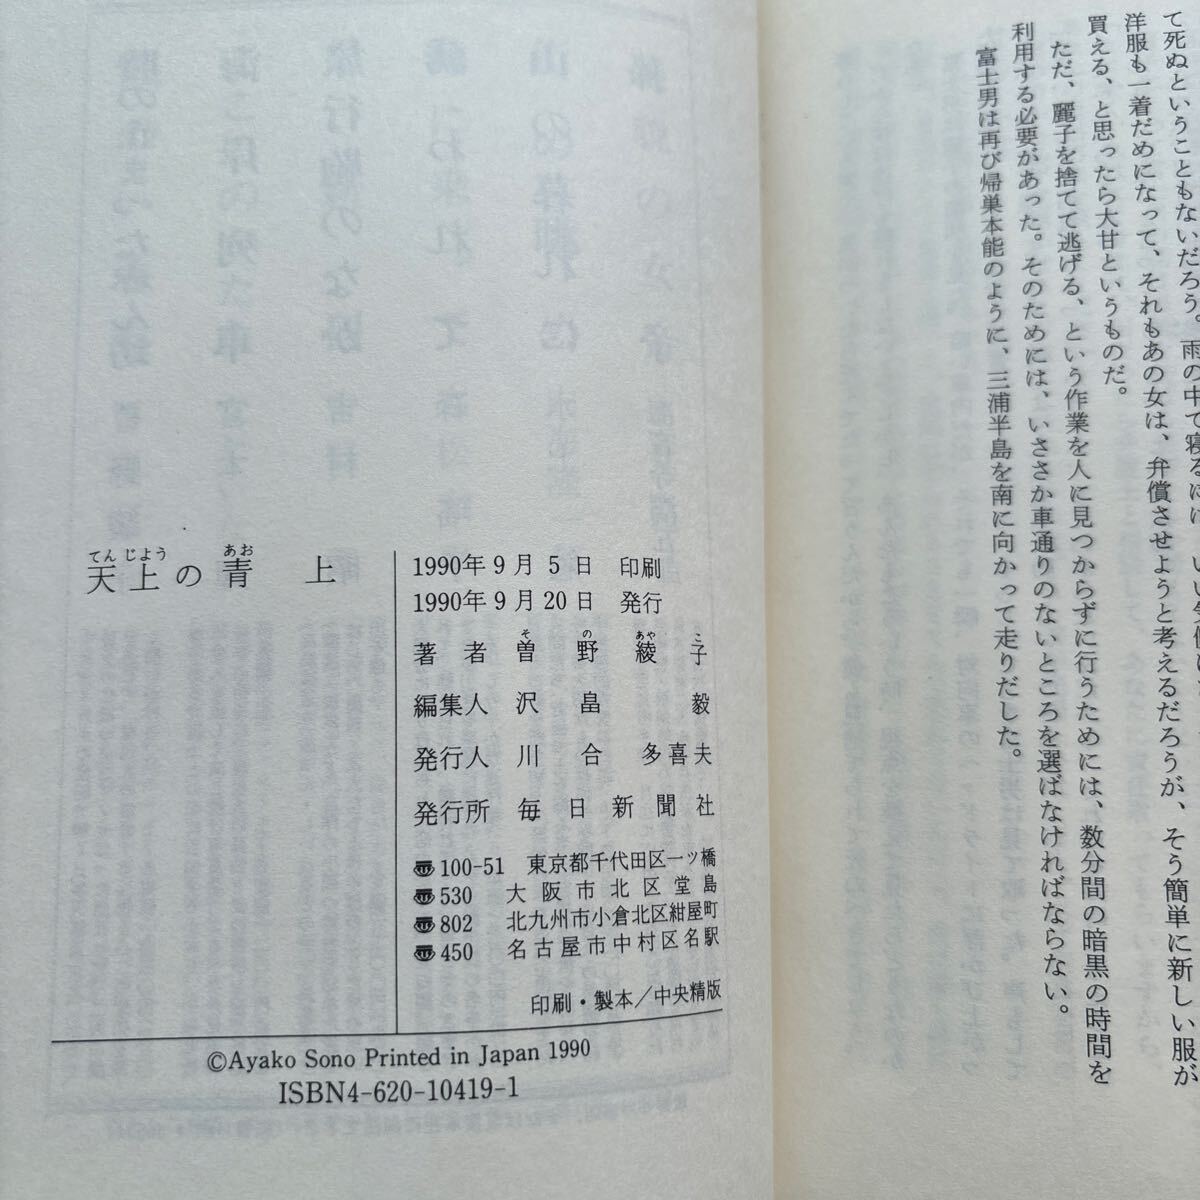 て死ぬということもないだろう。雨の中で寝るには
洋服も一着だめになって、それもあの女は、弁償させようと考えるだろうが、そう簡単に新しい服が
買える、と思ったら大甘というものだ。
ただ、麗子を捨てて逃げる、という作業を人に見つからずに行うためには、数分間の暗黒の時間を
利用する必要があった。そのためには、いささか車通りのないところを選ばなければならない。
富士男は再び帰巣本能のように、三浦半島を南に向かって走りだした。
てんじよう あお
天上の青 上
1990年9月5日 印刷
1990年9月20日 発行
その あやこ
著者 曽野綾子
編集人 沢畠毅
発行人 川合多喜夫
発行所 毎日新聞社
〠100-51 東京都千代田区一ツ橋
〠530 大阪市北区堂島
〠802 北九州市小倉北区紺屋町
〠450 名古屋市中村区名駅
印刷・製本／中央精版
©Ayako Sono Printed in Japan 1990
ISBN4-620-10419-1